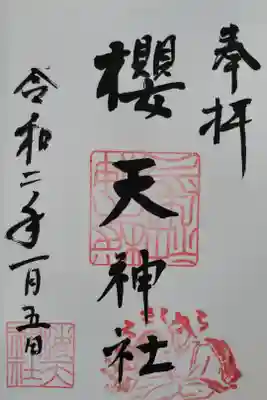 奉拝
櫻天神社
令和二年一月五日